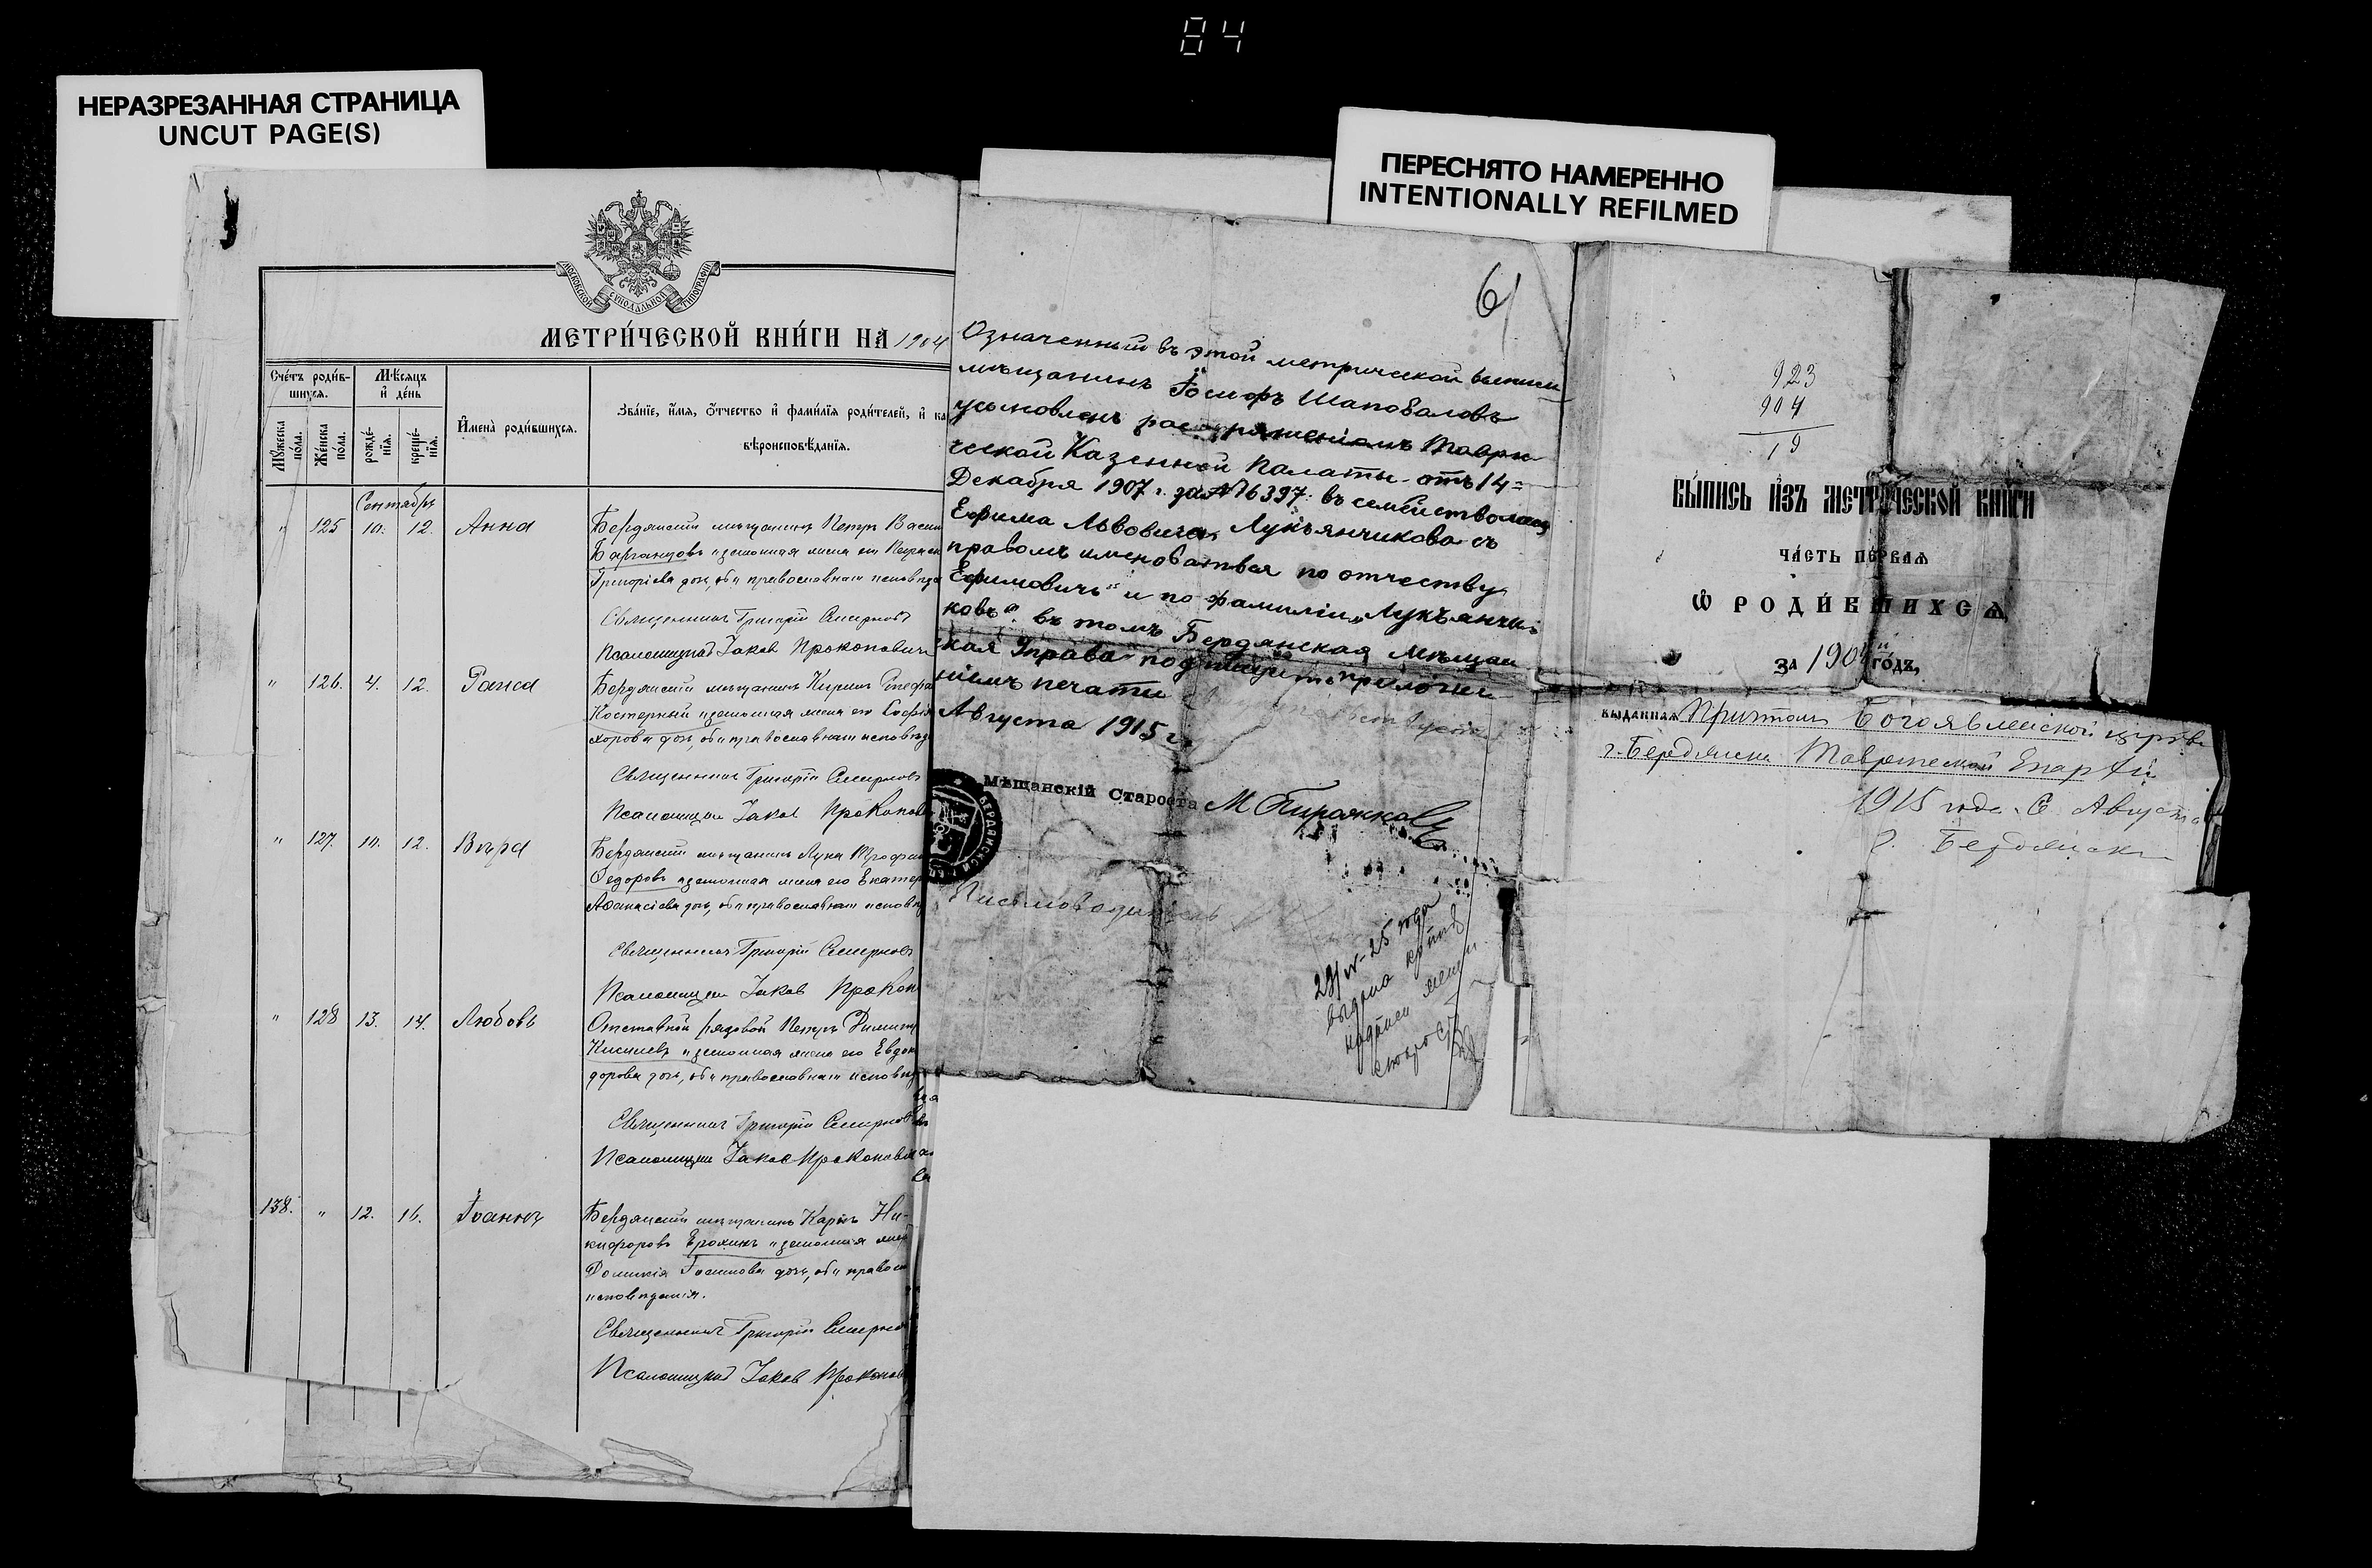 84
НЕРАЗРЕЗАННАЯ СТРАНИЦА
UNCUT PAGE(S)
ПЕРЕСНЯТО НАМЕРЕННО
INTENTIONALLY REFILMED
МОСКОВСКОЙ СѴНОДАЛЬНОЙ ТИПОГРАФІИ
МЕТРИ́ЧЕСКОЙ КНИ́ГИ НА 1904
Сче́тъ роди́в-
шихсѧ.
Мꙋ́жеска по́ла.
Же́нска по́ла.
Мѣ́сѧцъ
и҆ де́нь
рожде́-
нїѧ.
креще́-
нїѧ.
И҆мена̀ роди́вшихсѧ.
Зва́нїе, и҆́мѧ, ѻ҆́тчество и҆ фами́лїѧ роди́телей, и҆ ка
вѣроисповѣ́данїѧ.
Сентябрь
" 125 10. 12. Анна
Бердянскій мѣщанинъ Петръ Васи
законная жена его
Григоріева дочь, оба православнаго исповѣда
Священникъ Григорій Смирновъ
Псаломщикъ Іаковъ Прокопович
" 126. 4. 12. Раиса
Бердянскій мѣщанинъ Кирилъ Стефа
Костерный и законная жена его Софія
дочь, оба православнаго исповѣд
Священникъ Григорій Смирновъ
Псаломщикъ Іаковъ Прокопов
" 127. 10. 12. Вѣра
Бердянскій мѣщанинъ Лука Трофи
Ѳедоровъ и законная жена его Екатер
Аѳанасіева дочь, оба православнаго исповѣд
Священникъ Григорій Смирновъ
Псаломщикъ Іаковъ Прокоп
" 128 13. 14. Любовь
Отставной рядовой Петръ Димит
Киселевъ и законная жена его Евдок
дорова дочь, оба православнаго исповѣд
Священникъ Григорій Смирновъ
Псаломщикъ Іаковъ Прокопов
138. " 12. 16. Іоаннъ
Бердянскій мѣщанинъ Карпъ Ни-
кифоровъ Ерохинъ и законная жен
Домникія Іосифова дочь, оба правосл
исповѣданія.
Священникъ Григорій Смирно
Псаломщикъ Іаковъ Прокопов
61
Означенный въ этой метрической выписи
мѣщанинъ Іосифъ Шаповаловъ
усыновленъ распоряженіемъ Таври
ческой Казенной Палаты отъ 14=
Декабря 1907 г. за № 16397. въ семейство мѣщ
Ефима Львовича Лукъянчикова съ
правомъ именоваться по отчеству
Ефимовичъ" и по фамиліи „Лукъянчи-
ковъ". въ томъ Бердянская Мѣщан
ская Управа подписью и приложе
ніемъ печати свидѣтельствуетъ
Августа 1915 г.
Мѣщанскій Староста М Пирожковъ
БЕРДЯНСКОЙ
Письмоводитель
29/IV-25 года
выдана
надписи
923
904
19
ВЫ́ПИСЬ И҆ЗЪ МЕТРИ́ЧЕСКОЙ КНИ́ГИ
ЧА́СТЬ ПЕ́РВАѦ
Ѡ҆ РОДИ́ВШИХСѦ,
ЗА 1904й ГО́ДЪ,
выданная Причтомъ Богоявленской церкви
г. Бердянска Таврической Епархіи
1915 года 6 Августа
г. Бердянскъ